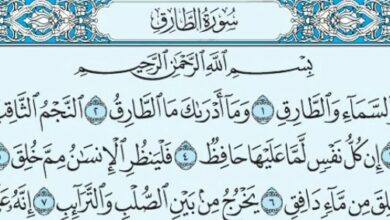 سُورَةُ الطَّارِقِ
بِسْمِ اللَّهِ الرَّحْمَٰنِ الرَّحِيمِ
السَّمَاءِ وَالطَّارِقِ ١ وَمَا أَدْرَاكَ مَا الطَّارِقُ ٢ النَّجْمُ الثَّاقِ
إِن كُلُّ نَفْسٍ لَّمَّا عَلَيْهَا حَافِظٌ ٤ فَلْيَنظُرِ الْإِنسَانُ مِمَّ خُلِقَ
لِقَ مِن مَّاءٍ دَافِقٍ ٦ يَخْرُجُ مِن بَيْنِ الصُّلْبِ وَالتَّرَائِبِ ٧ إِنَّهُ عَ